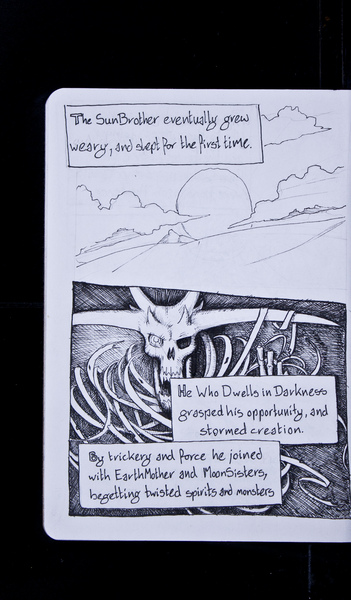 The SunBrother eventually grew
weary, and slept for the first time.
He Who Dwells in Darkness
grasped his opportunity, and
stormed creation.
By trickery and force he joined
with EarthMother and MoonSisters,
begetting twisted spirits and monsters